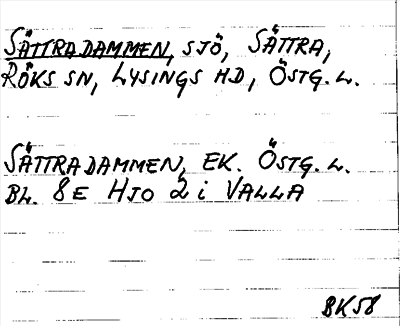 SÄTTRADAMMEN, SJÖ, SÄTTRA,
RÖKS SN, LYSINGS HD, ÖSTG. L.
SÄTTRADAMMEN, EK. ÖSTG. L.
BL. 8E HJO 2 i VALLA
BK58